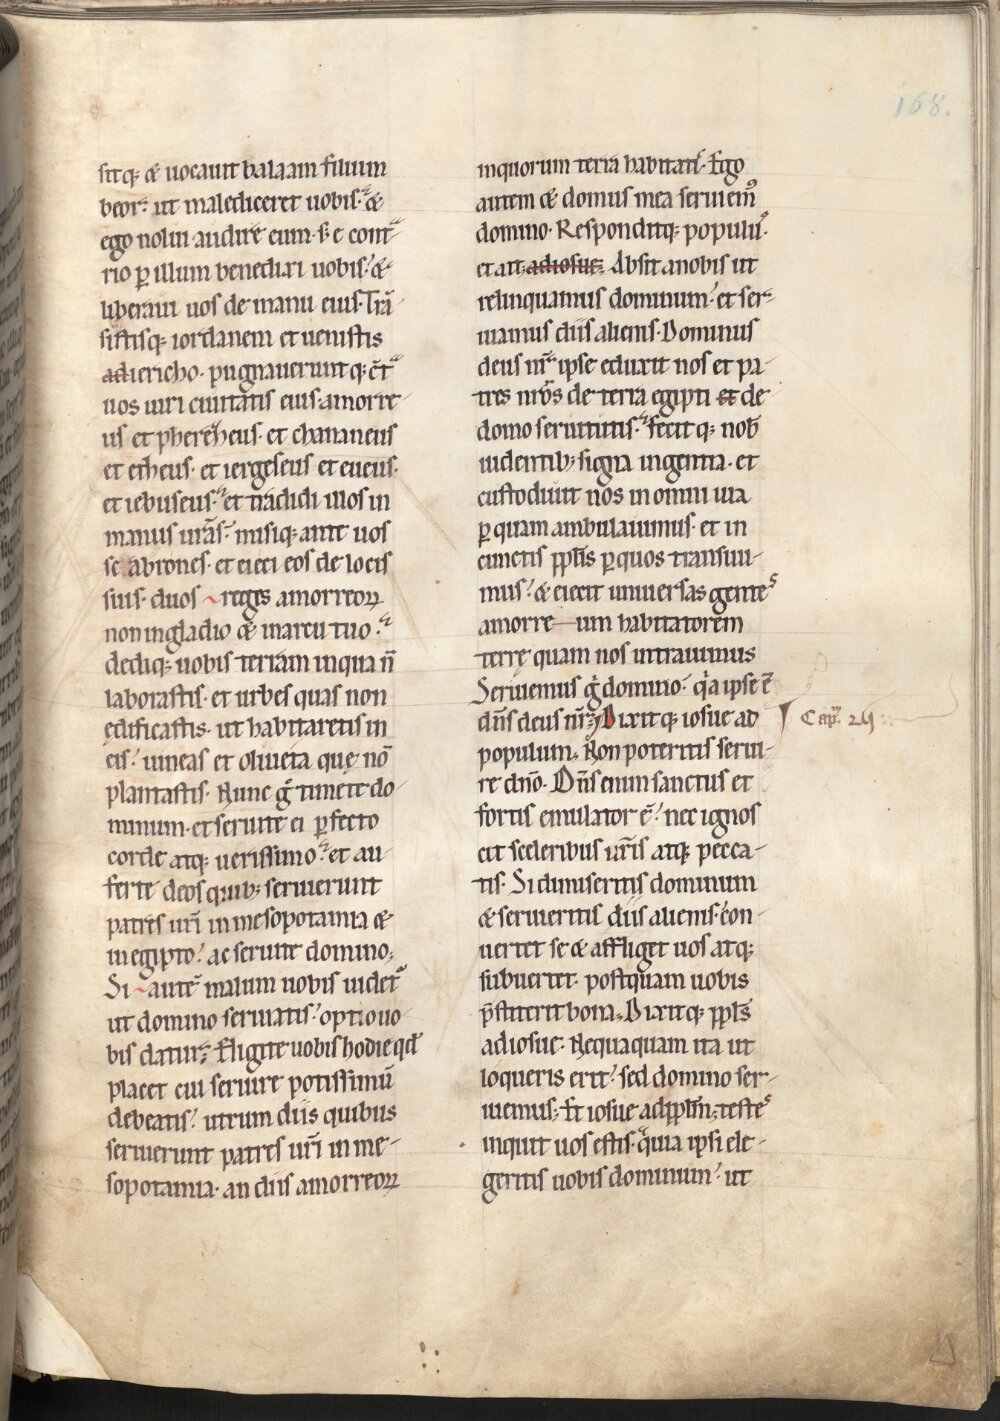 168.
sitq; & uocauit balaam filium
beor: ut malediceret uobis. &
ego nolui audire eum. s; e cont
rio p illum benedixi uobis. &
liberaui uos de manu eius. Trã
sistisq; iordanem et uenistis
ad iericho. pugnaueruntq; ct̃
uos uiri ciuitatis eius. amorre
us et pherezeus. et chananeus
et etheus. et iergeseus et eueus.
et iebuseus. et tradidi illos in
manus uras. misiq; ante uos
scabrones. et eieci eos de locis
suis. duos reges amorreoꝝ
non in gladio & in arcu tuo.
dediq; uobis terram in qua ñ
laborastis. et urbes quas non
edificastis. ut habitaretis in
eis. uineas et oliueta quę nõ
plantastis. Nunc g̃ timete do
minum. et seruite ei pfecto
corde atq; uerissimo. et au
ferte deos quib; seruierunt
patres uri in mesopotamia &
in egipto. ac seruite domino.
Si autẽ malum uobis uidet̃
ut domino seruiatis. optio uo
bis datur. Eligite uobis hodie qd
placet cui seruire potissimũ
debeatis. utrum diis quibus
seruierunt patres uri in me-
sopotamia. an diis amorreoꝝ
in quorum terra habitatis. Ego
autem & domus mea seruiem
domino. Responditq; populus.
et ait adiosue. Absit a nobis ut
relinquamus dominum. et ser
uiamus diis alienis. Dominus
deus nr ipse eduxit nos et pa-
tres nros de terra egipti et de
domo seruitutis. fecitq; nob̃
uidentib; signa ingentia. et
custodiuit nos in omni uia
p quam ambulauimus. et in
cunctis pplis p quos transiui-
mus. & eiecit uniuersas gentes
amorreum habitatorem
terrę quam nos intrauimus
Seruiemus g̃ domino. qa ipse ẽ
dns deus nr. Dixitq; iosue ad
Cap. 24
populum. Non poteritis serui-
re dño. Dñs enim sanctus et
fortis emulator ẽ. nec ignos
cit sceleribus uris atq; pecca-
tis. Si dimiseritis dominum
& seruieritis diis alienis. con-
uertet se & affliget uos atq;
subuertet. postquam uobis
p̃stiterit bona. Dixitq; ppls
ad iosue. Nequaquam ita ut
loqueris erit. sed domino ser-
uiemus. Et iosue ad pplm. testes
inquit uos estis. quia ipsi ele-
geritis uobis dominum. ut